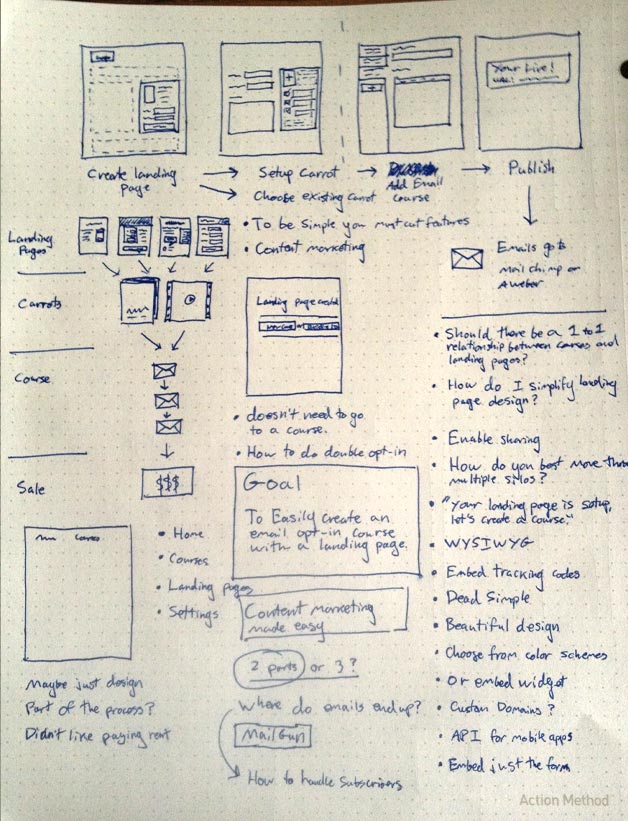 Logo
Your live!
URL:
Create landing
page
Setup Carrot
Choose existing carrot
Add Email
course
Publish
Landing
Pages
• To be simple you must cut features
• Content marketing
Emails go to
Mail chimp or
Aweber
Carrots
Landing page created
or
Course
• doesn't need to go
to a course.
• How to do double opt-in
Sale
$$$
Goal
To Easily create an
email opt-in course
with a landing page.
• Home
• Courses
• Landing pages
• Settings
Content marketing
made easy
2 parts or 3?
Where do emails end up?
MailGun
How to handle subscribers
Maybe just design
Part of the process?
Didn't like paying rent
• Should there be a 1 to 1
relationship between and
landing pages?
• How do I simplify landing
page design?
• Enable sharing
• How do you best move
multiple silos?
• "Your landing page is setup,
let's create a course."
• WYSIWYG
• Embed tracking codes
• Dead Simple
• Beautiful design
• Choose from color schemes
• Or embed widget
• Custom Domains?
• API for mobile apps
• Embed just the form
Action Method